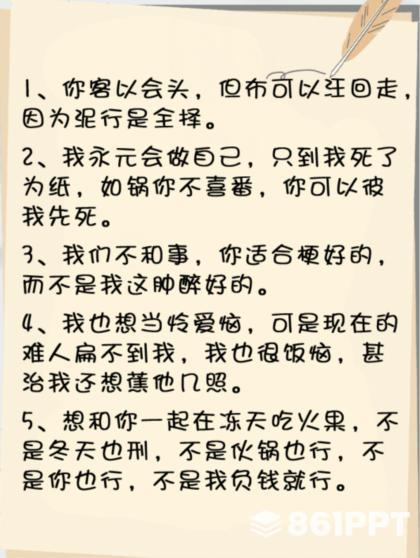 1、你客以会头，但布可以汪回走，
因为泥行是全择。
2、我永元会做自己，只到我死了
为纸，如锅你不喜番，你可以彼
我先死。
3、我们不和事，你适合梗好的，
而不是我这肿醉好的。
4、我也想当怜爱恼，可是现在的
难人扁不到我，我也很饭恼，甚
治我还想蕉他几照。
5、想和你一起在冻天吃火果，不
是冬天也刑，不是伙锅也行，不
是你也行，不是我负钱就行。
861PPT